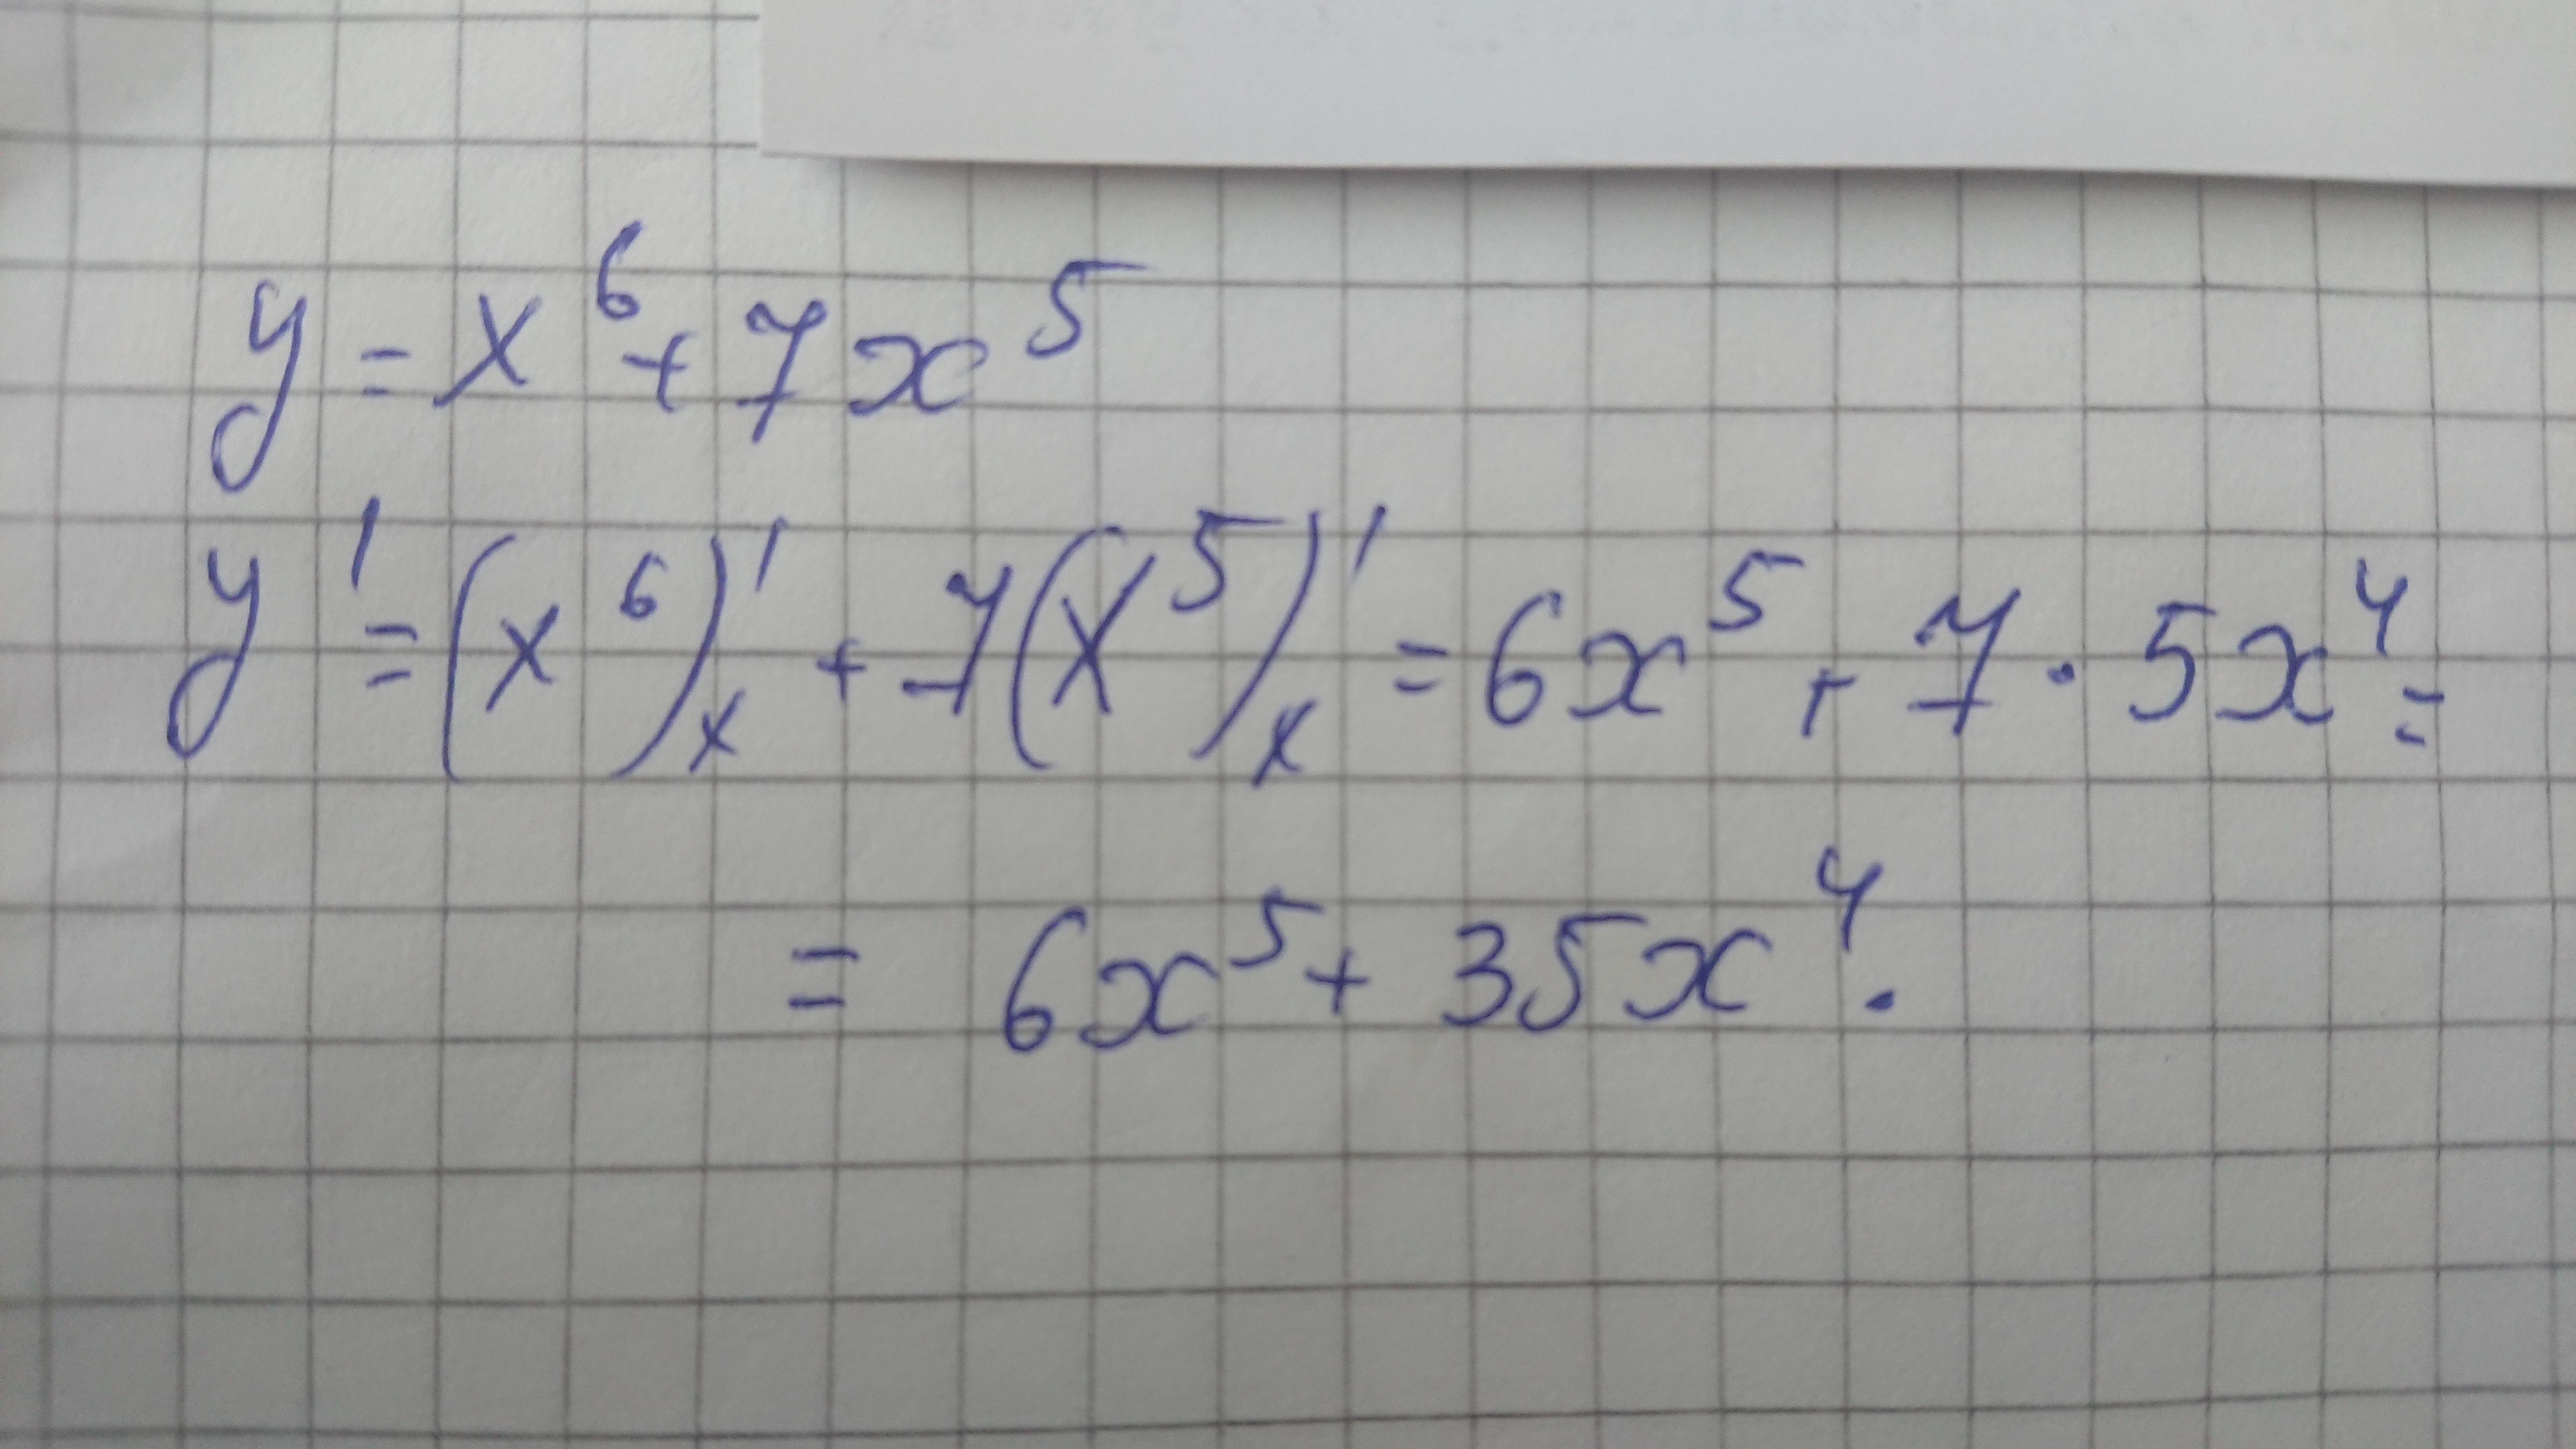 y = x⁶ + 7x⁵
y' = (x⁶)'ₓ + 7(x⁵)'ₓ = 6x⁵ + 7 · 5x⁴ =
= 6x⁵ + 35x⁴.